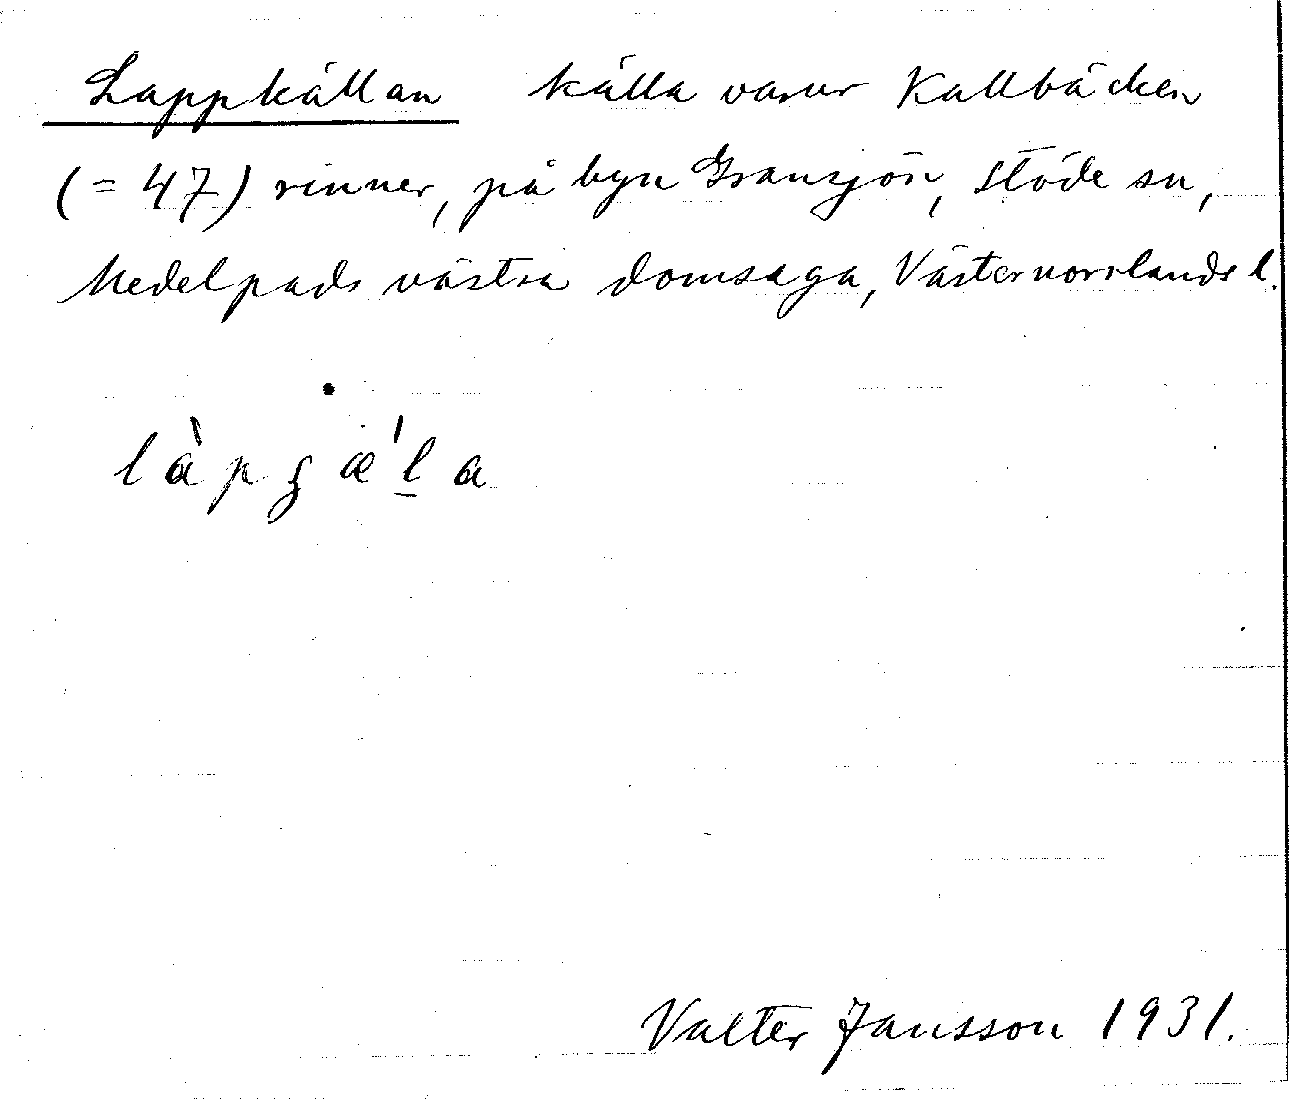 Lappkällan källa varur Kallbäcken
(= 47) rinner, på byn Gransjön, Stöde sn,
Medelpads västra domsaga, Västernorrlands l.
làpʒæ̍l̲a
Valter Jansson 1931.